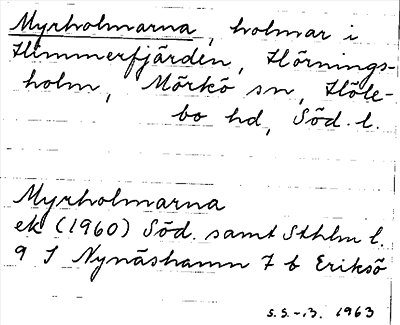 Myrholmarna, holmar i
Himmerfjärden, Hörnings-
holm, Mörkö sn, Höle-
bo hd, Söd. l.
Myrholmarna
ek (1960) Söd. samt Sthlm l.
9 I Nynäshamn 7 b Eriksö
S.S.-B. 1963